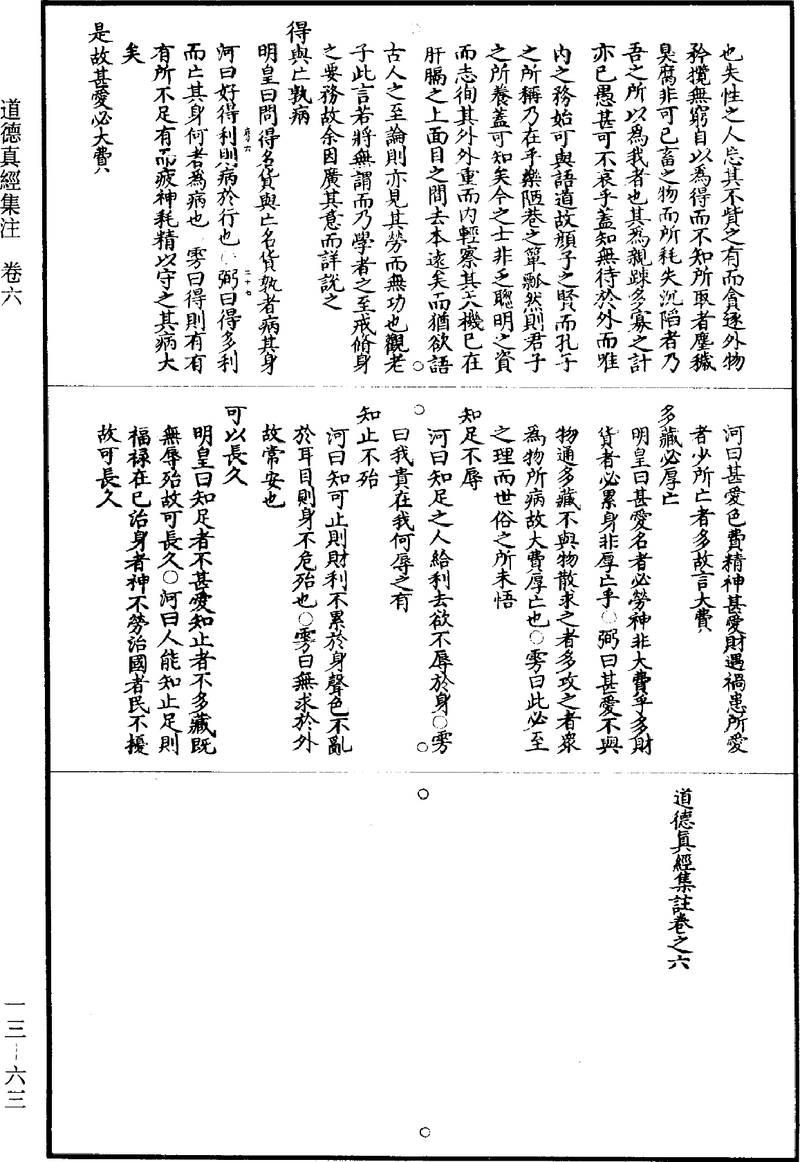 道德真經集注　卷六
也夫性之人忘其不貲之有而貪逐外物
矜攬無窮自以為得而不知所取者塵穢
臭腐非可已畜之物而所耗失沉陷者乃
吾之所以為我者也其為親踈多寡之計
亦已愚甚可不哀乎蓋知無待於外而唯
內之務始可與語道故顏子之賢而孔子
之所稱乃在乎樂陋巷之簞瓢然則君子
之所養蓋可知矣今之士非乏聰明之資
而志徇其外外重而內輕察其天機已在
肝膈之上面目之間去本遠矣而猶欲語
古人之至論則亦見其勞而無功也觀老
子此言若將無謂而乃學者之至戒脩身
之要務故余因廣其意而詳說之
得與亡孰病
明皇曰問得名貨與亡名貨孰者病其身
河曰好得利則病於行也○弼曰得多利
而亡其身何者為病也　雱曰得則有有
有所不足有而疲神耗精以守之其病大
矣
是故甚愛必大費
河曰甚愛色費精神甚愛財遇禍患所愛
者少所亡者多故言大費
多藏必厚亡
明皇曰甚愛名者必勞神非大費乎多財
貨者必累身非厚亡乎○弼曰甚愛不與
物通多藏不與物散求之者多攻之者衆
為物所病故大費厚亡也○雱曰此必至
之理而世俗之所未悟
知足不辱
河曰知足之人給利去欲不辱於身○雱
曰我貴在我何辱之有
知止不殆
河曰知可止則財利不累於身聲色不亂
於耳目則身不危殆也○雱曰無求於外
故常安也
可以長久
明皇曰知足者不甚愛知止者不多藏既
無辱殆故可長久○河曰人能知止足則
福祿在己治身者神不勞治國者民不擾
故可長久
道德真經集註卷之六
一三—六三